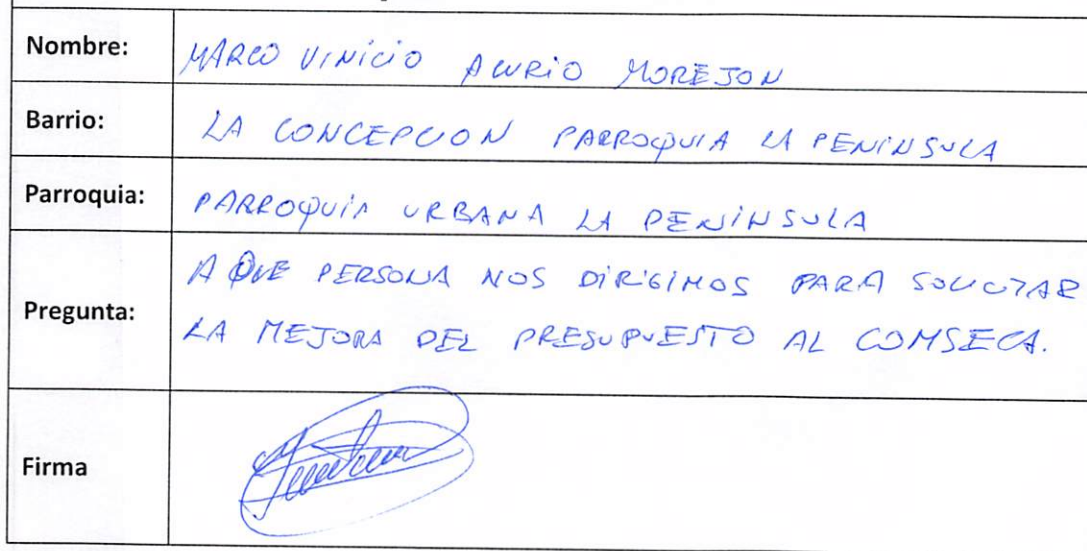 Nombre: MARCO VINICIO ACURIO MOREJON
Barrio: LA CONCEPCION PARROQUIA LA PENINSULA
Parroquia: PARROQUIA URBANA LA PENINSULA
Pregunta: A QUE PERSONA NOS DIRIGIMOS PARA SOLICITAR
LA MEJORA DEL PRESUPUESTO AL COMSECA.
Firma